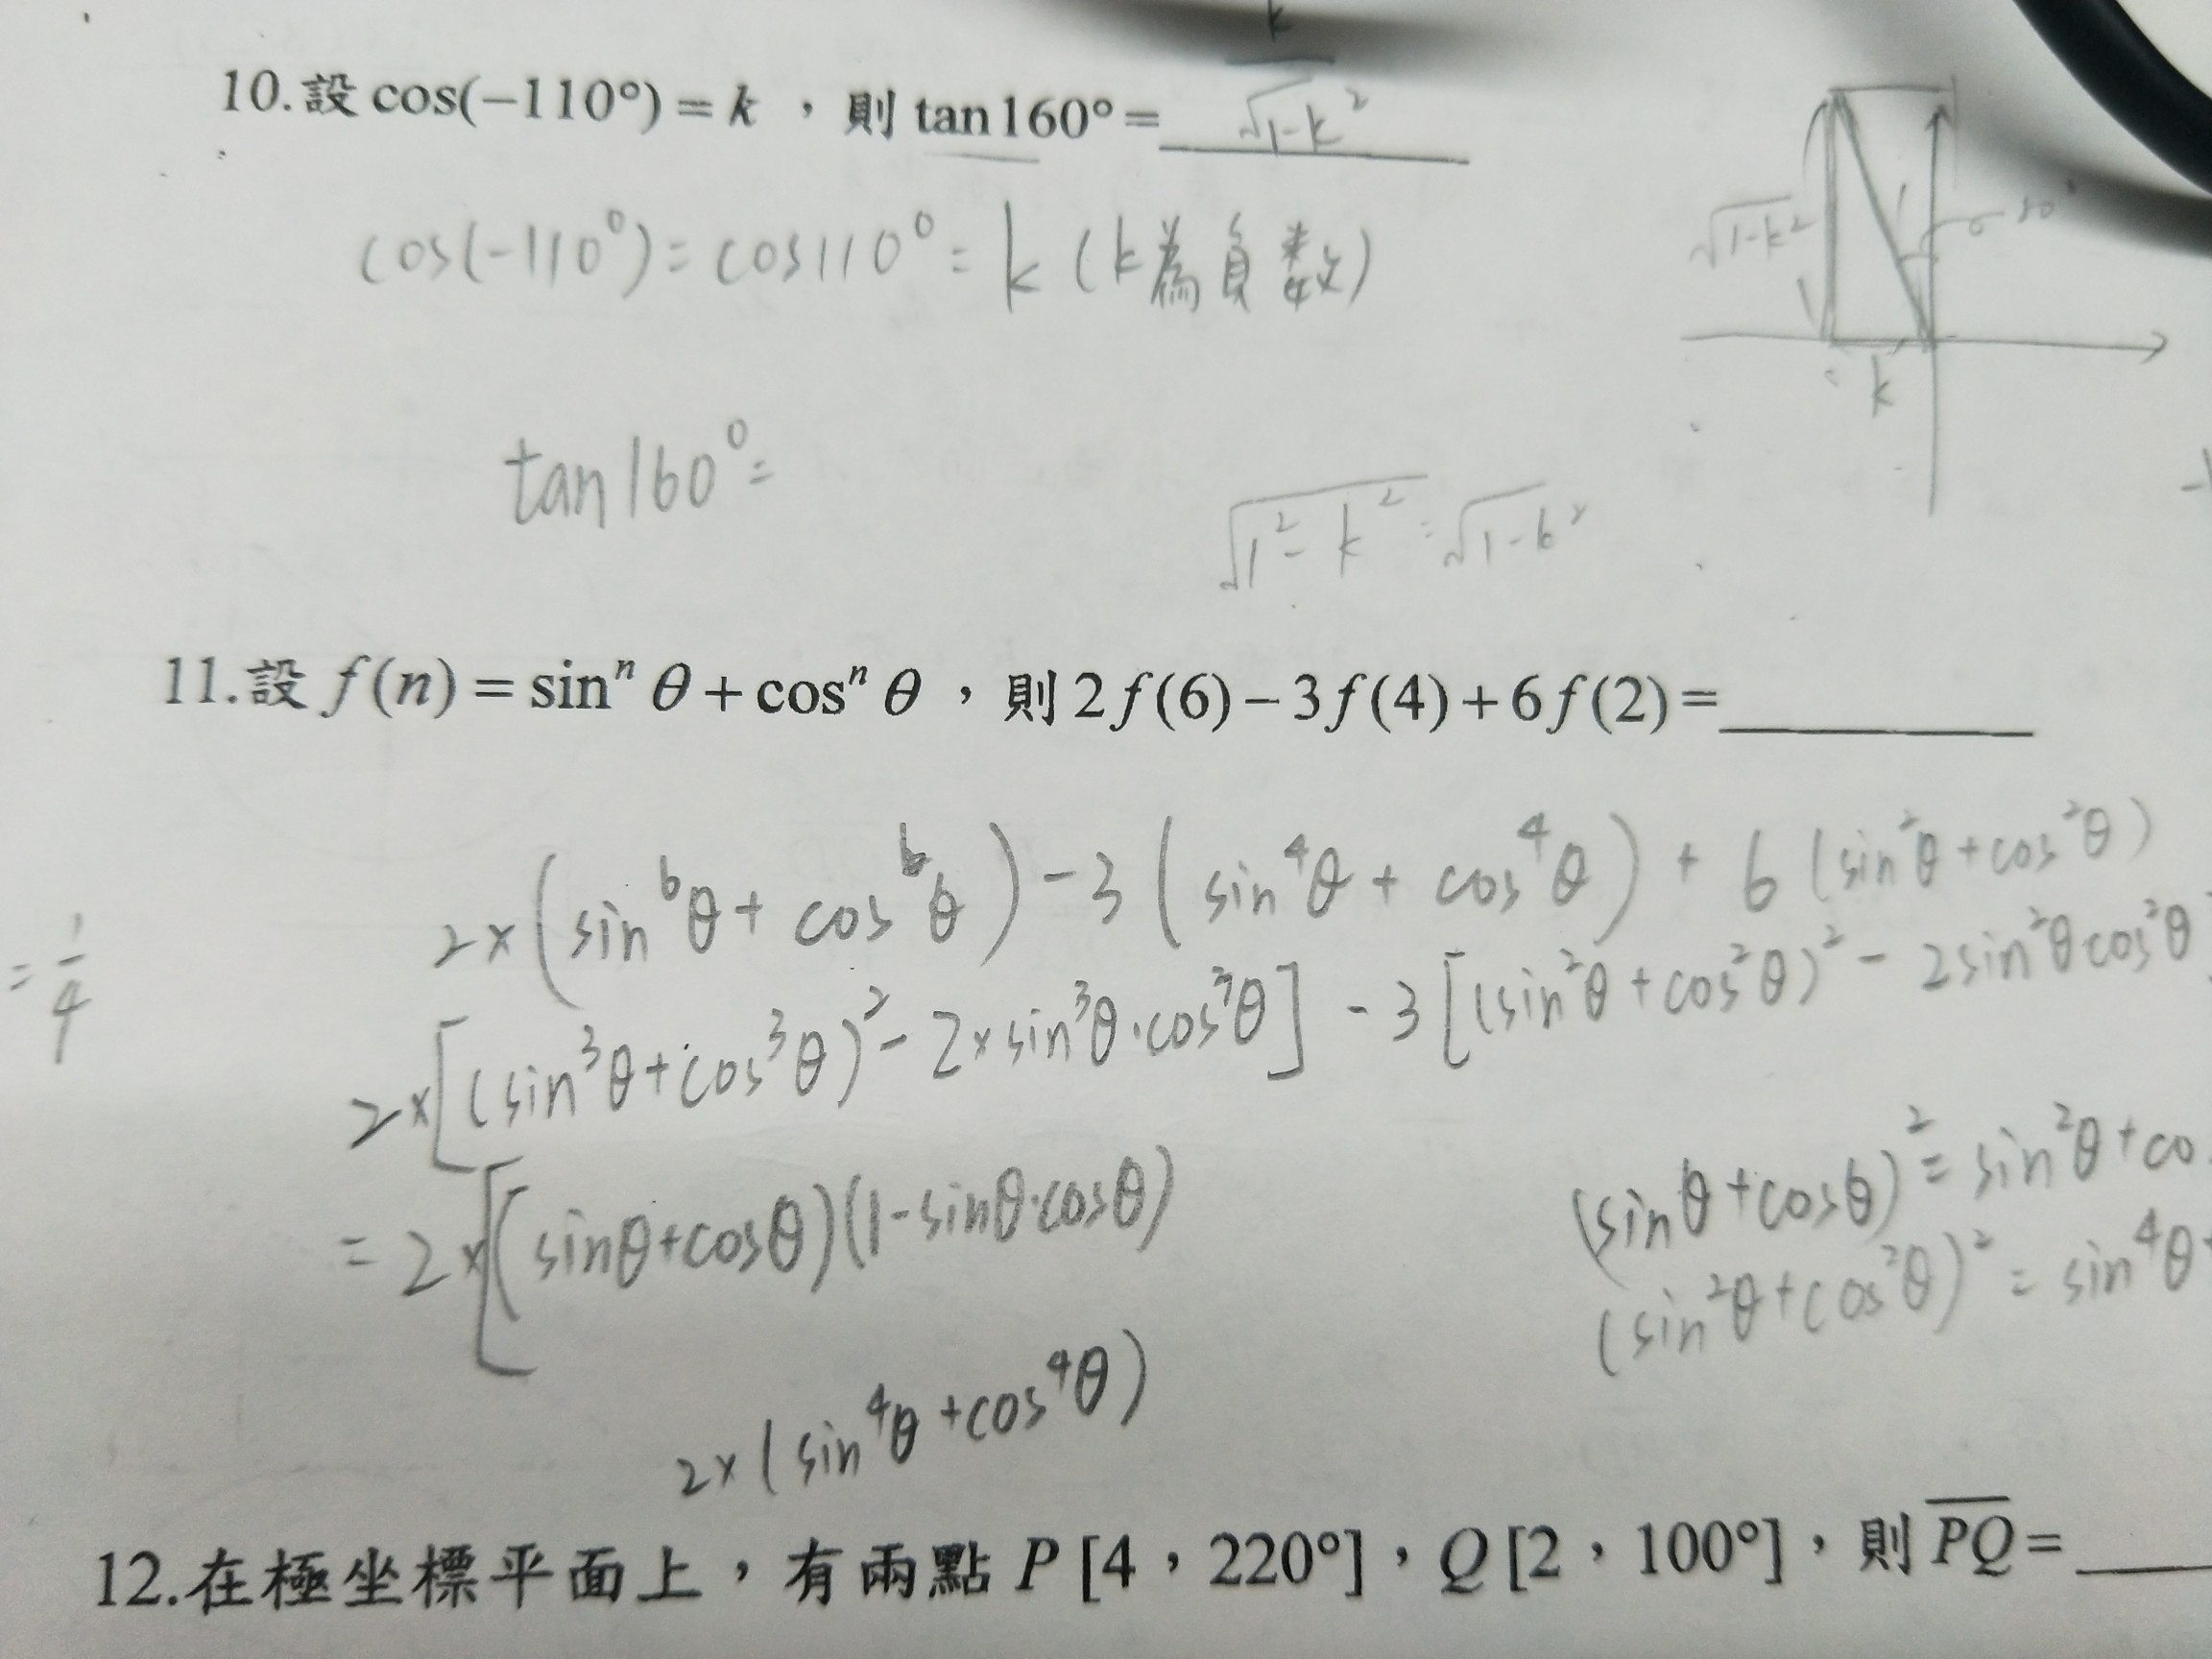 10.設 cos(−110°) = k ，則 tan160° = k/√1-k²
cos(-110°) = cos110° = k (k為負數)
√1-k²
1
20°
k
tan160° =
√1²-k² = √1-k²
11.設 f(n) = sinⁿ θ + cosⁿ θ ，則 2f(6) − 3f(4) + 6f(2) =
2×(sin⁶θ + cos⁶θ) - 3(sin⁴θ + cos⁴θ) + 6(sin²θ + cos²θ)
= 1/4
2×[(sin³θ+cos³θ)² - 2×sin³θ·cos³θ] - 3[(sin²θ + cos²θ)² - 2sin²θcos²θ
= 2×[(sinθ+cosθ)(1-sinθ·cosθ)
(sinθ+cosθ)² = sin²θ + co
(sin²θ+cos²θ)² = sin⁴θ+
2×(sin⁴θ+cos⁴θ)
12.在極坐標平面上，有兩點 P [4，220°]，Q [2，100°]，則 P̅Q̅ =